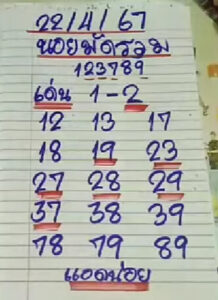 22/4/67
น้อยมัดรวม
123789
เด่น 1-2
12 13 17
18 19 23
27 28 29
37 38 39
78 79 89
แอดน้อย